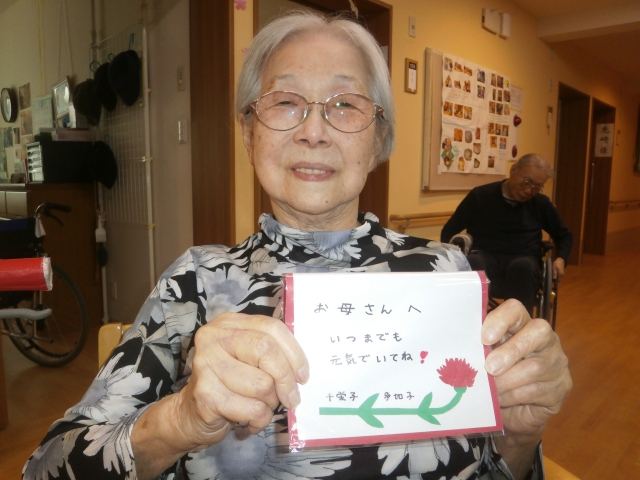 お母さんへ
いつまでも
元気でいてね!
千愛子 多加子